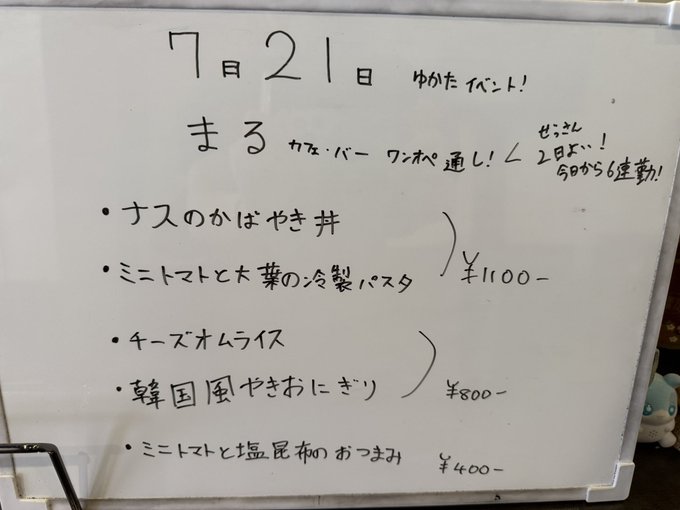 7月21日 ゆかたイベント!
まる カフェ・バー ワンオペ通し!
せっさん
2日よ…!
今日から6連勤!
・ナスのかばやき丼
・ミニトマトと大葉の冷製パスタ
¥1100-
・チーズオムライス
・韓国風やきおにぎり
¥800-
・ミニトマトと塩昆布のおつまみ ¥400-